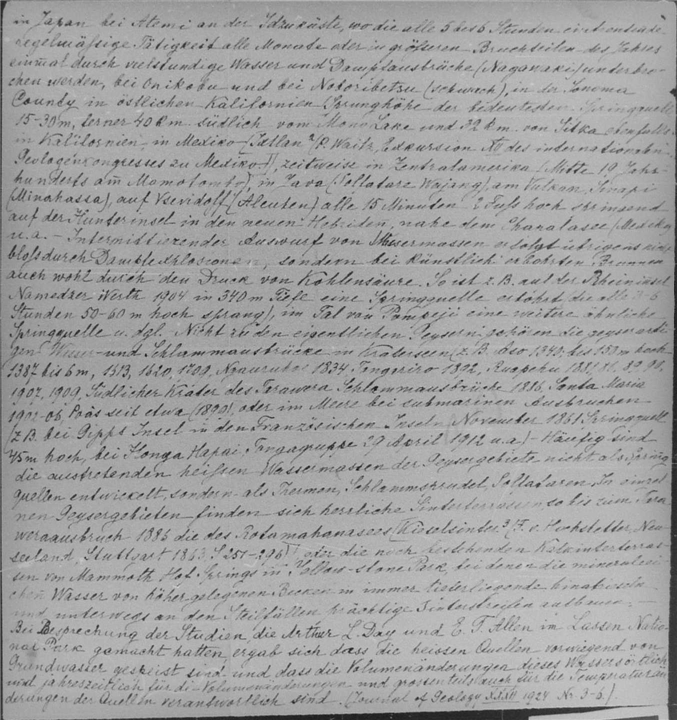 in Japan bei Atami an der Idzuküste, wo die alle 5 bes 6 Stunden eintretende
regelmässige Tätigkeit alle Monate oder in grösseren Bruchteilen des Jahres
einmal durch vielstundige Wasser und Dampfausbrüche (Naganaki) unterbro-
chen werden, bei Onikobu und bei Noboribetsu (schwach), in der Sonoma
County in östlichen Kalifornien (Sprunghöhe der bedeutesten Springquelle
15-30m, ferner 40 km südlich vom Mono Lake und 32 km. von Sitka ebenfalls
in Kalifornien, in Mexiko (R. Waitz, Exkursion des internationalen
Geologenkongresses zu Mexiko), zeitweise in Zentralamerika (Mitte 19 Jahr-
hunderts am Momotombo), in Java (Solfatare Wajang) am Vulkan,
(Minahassa), auf Vsevidoff (Aleuten) alle 15 Minuten 2 Fufs hoch springend
auf der Hunterinsel in den neuen Hebriden, nahe dem Chapalasee (Mexiko)
u.a. - Intermittiezender Auswurf von Wassermassen erfolgt übrigens nicht
blofs durch Dampfexplosionen, sondern bei künstlich erbohrten Brunnen
auch wohl durch den Druck von Kohlensäure. So ist z.B. auf der Rheininsel
Namedyer Werth 1904 in 340 m Tiefe eine Springquelle erbohrt die alle 3-6
Stunden 50-60 m hoch sprang), im Tal von Pompeji eine weitere ähnliche
Springquelle u. dgl. Nicht zu den eigentlichen Geysern gehören die geyserarti-
gen Wasser- und Schlammausbrüche in Kraterseen (z.B. Aso 1340, bis 150 m hoch
1387 bis 6 m, 1613, 1620, 1709, Ngauruhoe 1834, Tongariro 1892, Ruapehu
1907, 1909, Südlicher Krater des Tarawera Schlammausbrüche 1886, Santa Maria
1902-06, Poás seit etwa (1890), oder im Meere bei submarinen Ausbruchen
(z.B. bei Gipps Insel in den Französischen Inseln, November 1861 Springquell
45 m hoch, bei Honga Hapai Tongagruppe 29 April 1912 u.a) - Häufig sind
die austretenden heifsen Wassermassen der Geysergebiete nicht als Spring
quellen entwickelt, sondern als Thermen, Schlammsprudel Solfataren. In einzel-
nen Geysergebieten finden sich herrliche Sinterterrassen, so bis zum Tara-
weraausbruch 1886 die des Rotomahanasees (Kieselsinter) (F. v. Hochstetter Neu-
seeland Stuttgart 1863 S 251-296) oder die noch bestehenden Kalksinterterras-
sen von Mammoth Hot Springs in Yellow-stone Park bei denen die mineralrei-
chen Wasser von höher gelegenen Becken in immer tieferliegende hinabrieseln
und unterwegs an den Steilfällen prächtige Sinterstreifen aufbauen. -
Bei Besprechung der Studien, die Arthur L. Day und E. T. Allen im Lassen Natio-
nal Park gemacht hatten, ergab sich dass die heissen Quellen vorwiegend von
Grundwasser gespeist sind und dass die Volumenänderungen dieses Wassers örtlich
und jahreszeitlich für die Volumenänderungen und grossenteils auch für die Temperaturän-
derungen der Quellen verantwortlich sind. (Journal of Geology XXXII 1924 Nr. 3-6).